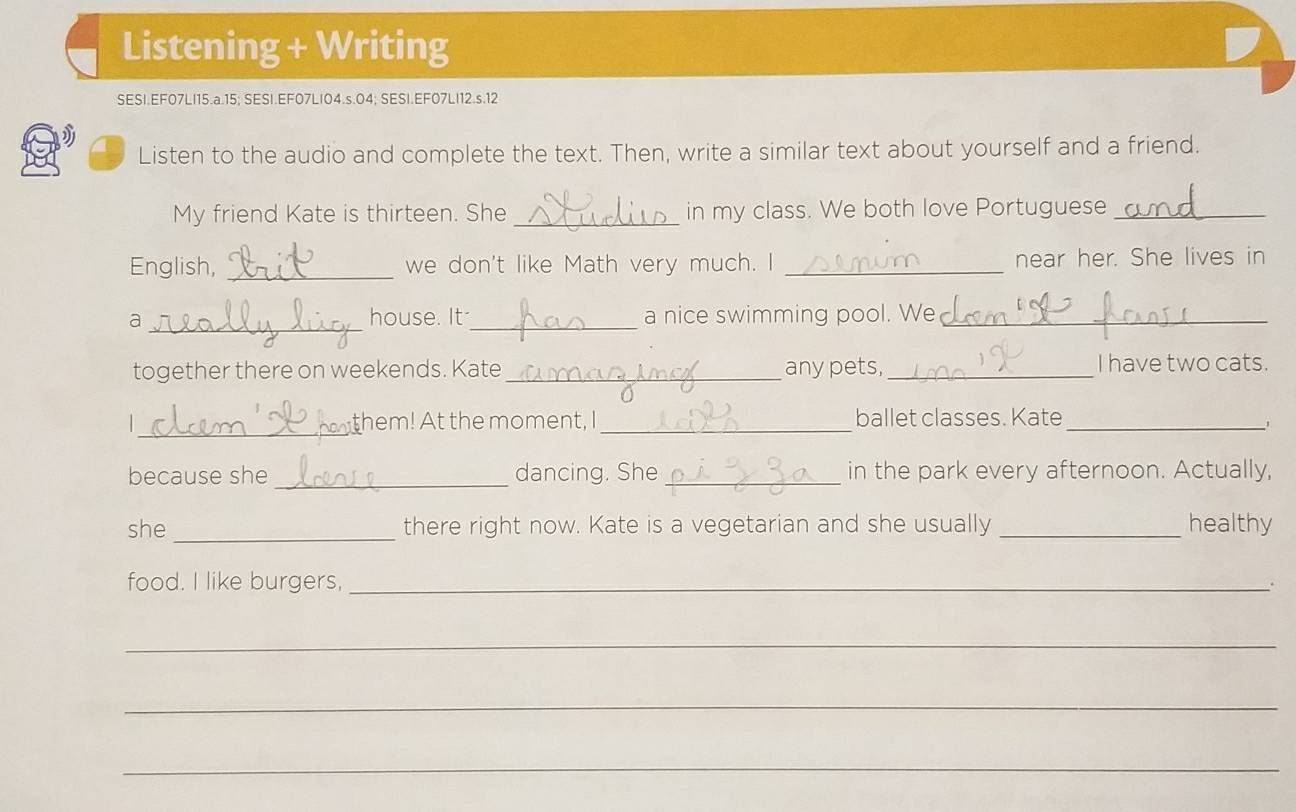 Listening + Writing
SESI.EF07LI15.a.15; SESI.EF07LI04.s.04; SESI.EF07LI12.s.12
Listen to the audio and complete the text. Then, write a similar text about yourself and a friend.
My friend Kate is thirteen. She studies in my class. We both love Portuguese and
English, we don't like Math very much. I near her. She lives in
a really big house. It has a nice swimming pool. We
together there on weekends. Kate amazing any pets, I have two cats.
I them! At the moment, I ballet classes. Kate ,
because she dancing. She pizza in the park every afternoon. Actually,
she there right now. Kate is a vegetarian and she usually healthy
food. I like burgers, .